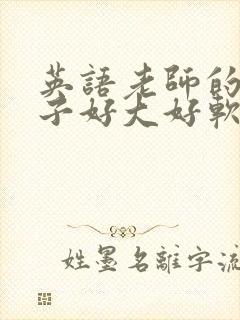 英語老師的
子好大好軟
姓墨名離字流